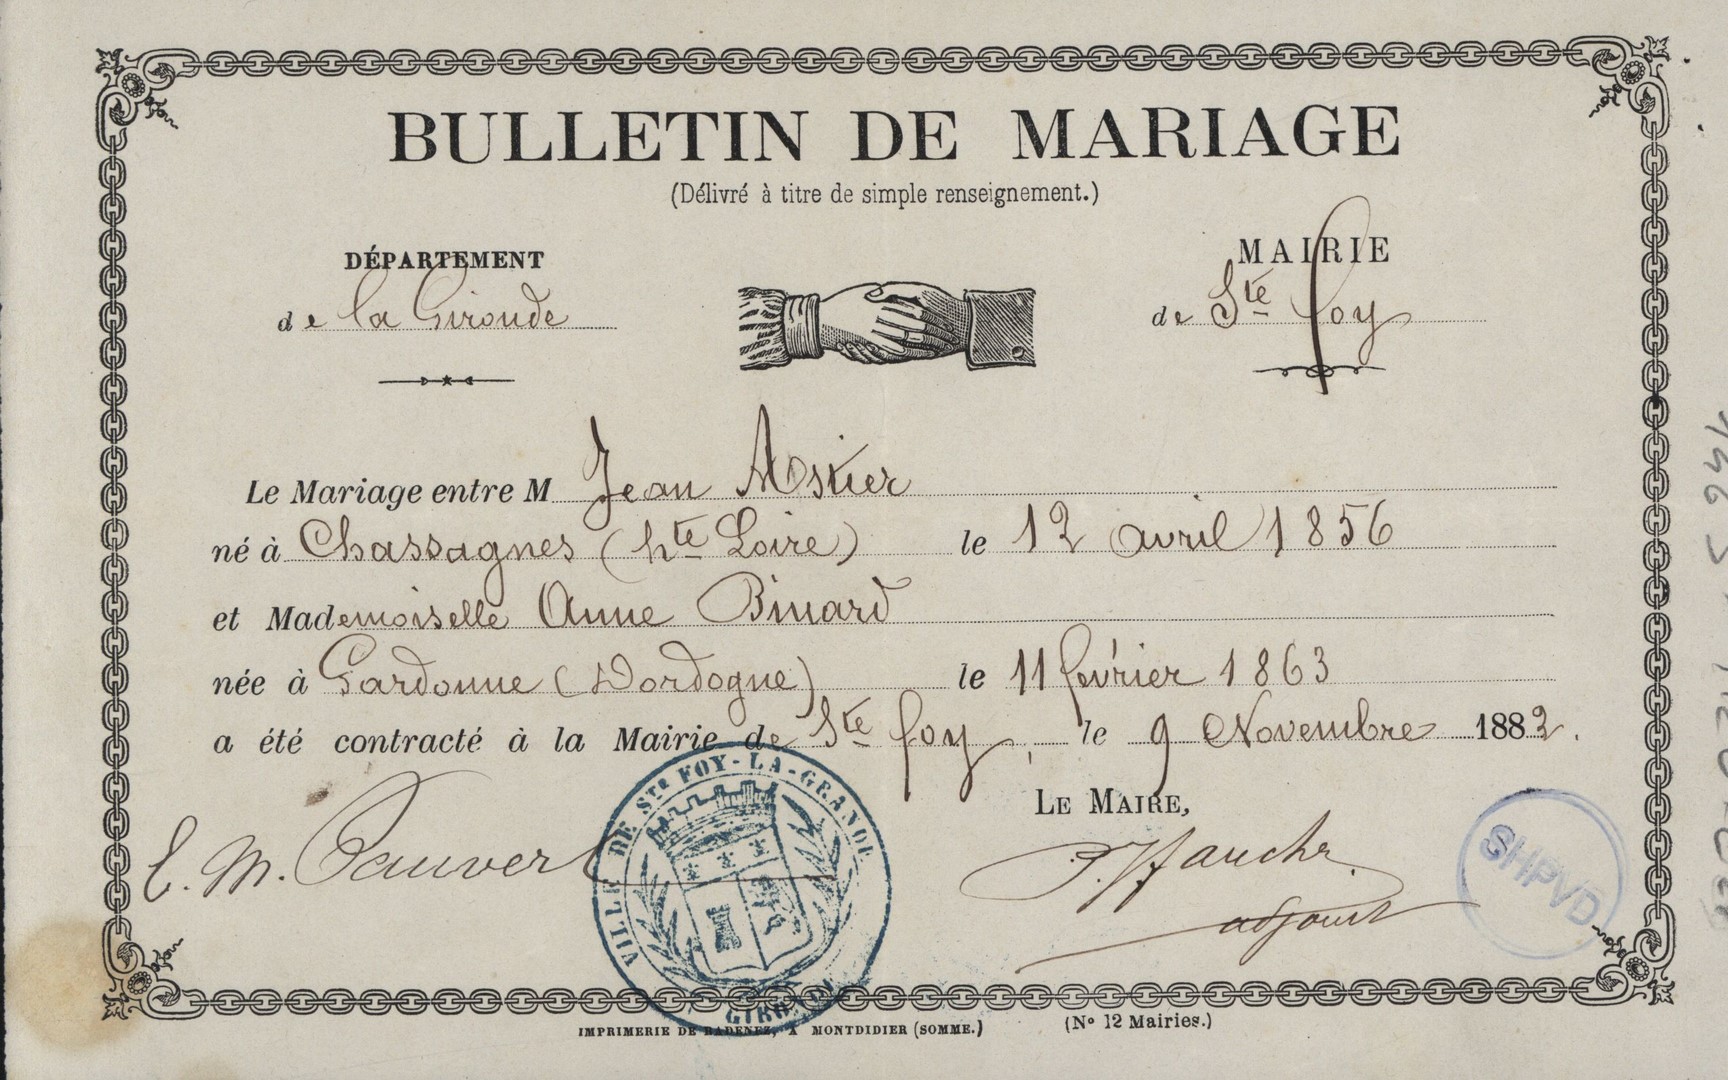 BULLETIN DE MARIAGE
(Délivré à titre de simple renseignement.)
DÉPARTEMENT
de la Gironde
MAIRIE
de Ste Foy
Le Mariage entre M Jean Astier
né à Chassagnes (hte Loire) le 12 avril 1856
et Mademoiselle Anne Binard
née à Gardonne (Dordogne) le 11 février 1863
a été contracté à la Mairie de Ste Foy, le 9 Novembre 1882.
LE MAIRE,
E. M.
adjoint
VILLE DE STE FOY-LA-GRANDE
GIRONDE
SHPVD
IMPRIMERIE DE RADENEZ, A MONTDIDIER (SOMME.)
(No 12 Mairies.)